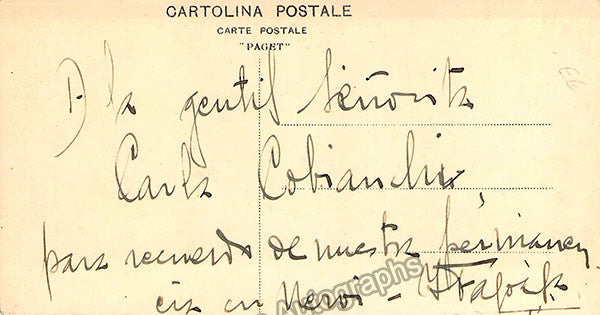 CARTOLINA POSTALE
CARTE POSTALE
"PAGET"
A la gentil Señorita
Carla Cobianchi
para recuerdo de nuestra permanen
cia en Nervi -
Autographs